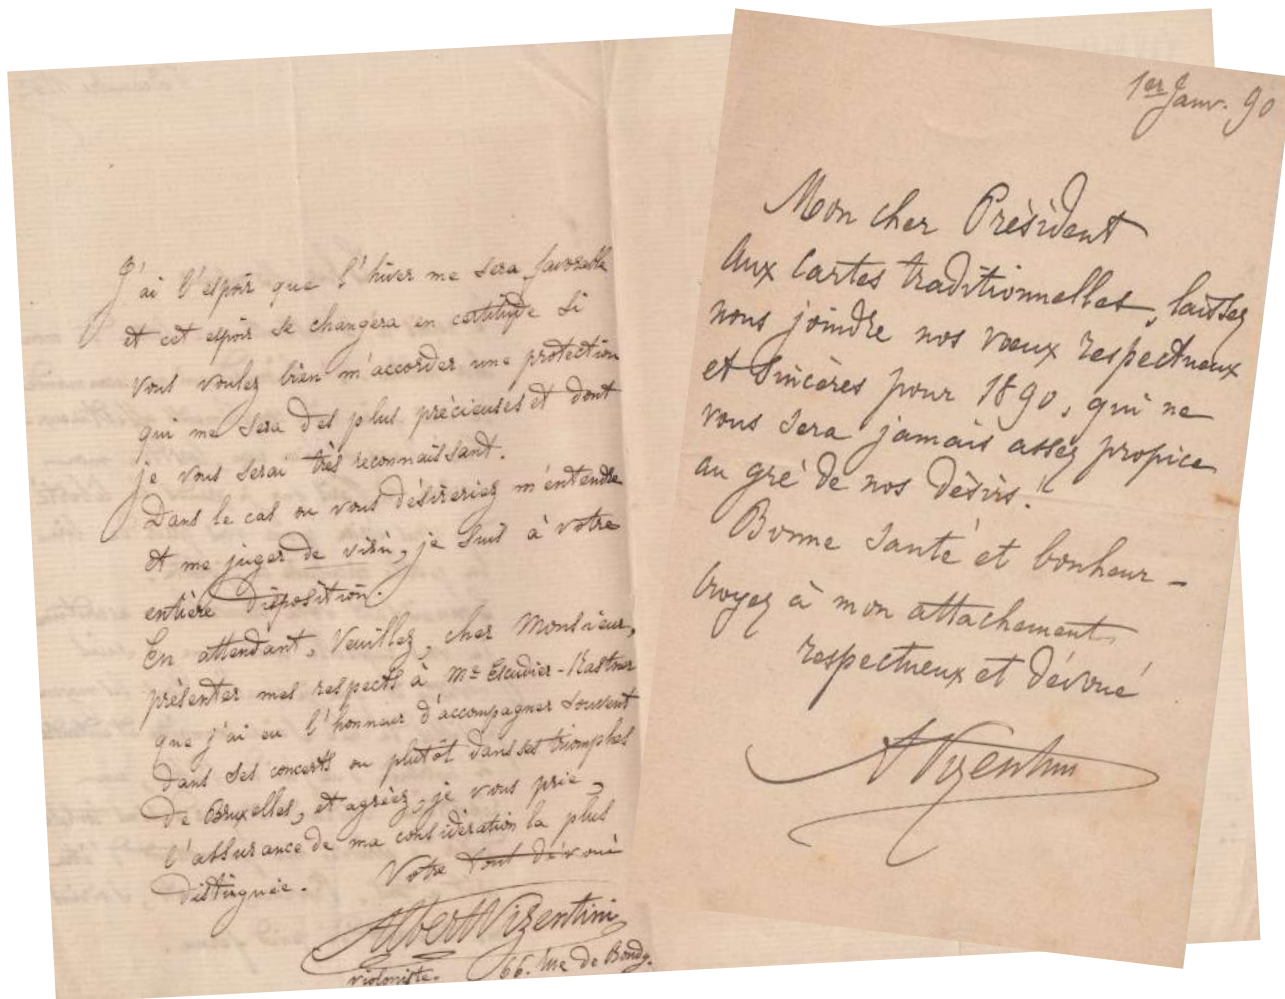 J'ai l'espoir que l'hiver me sera favorable
et cet espoir se changera en certitude si
vous voulez bien m'accorder une protection
qui me sera des plus précieuses et dont
je vous serai très reconnaissant.
Dans le cas ou vous désireriez m'entendre
et me juger de visu, je suis à votre
entière disposition.
En attendant, veuillez, cher Monsieur,
présenter mes respects à Me Escudier-Kastner
que j'ai eu l'honneur d'accompagner souvent
dans ses concerts ou plutôt dans ses triomphes
de Bruxelles, et agréez, je vous prie,
l'assurance de ma considération la plus
distinguée. Votre tout dévoué
Albert Vizentini
violoniste. 66. rue de Bondy.
1er Janv. 90
Mon cher Président
Aux cartes traditionnelles, laissez
nous joindre nos vœux respectueux
et sincères pour 1890, qui ne
vous sera jamais assez propice
au gré de nos désirs!
Bonne santé et bonheur –
Croyez à mon attachement
respectueux et dévoué
A Vizentini